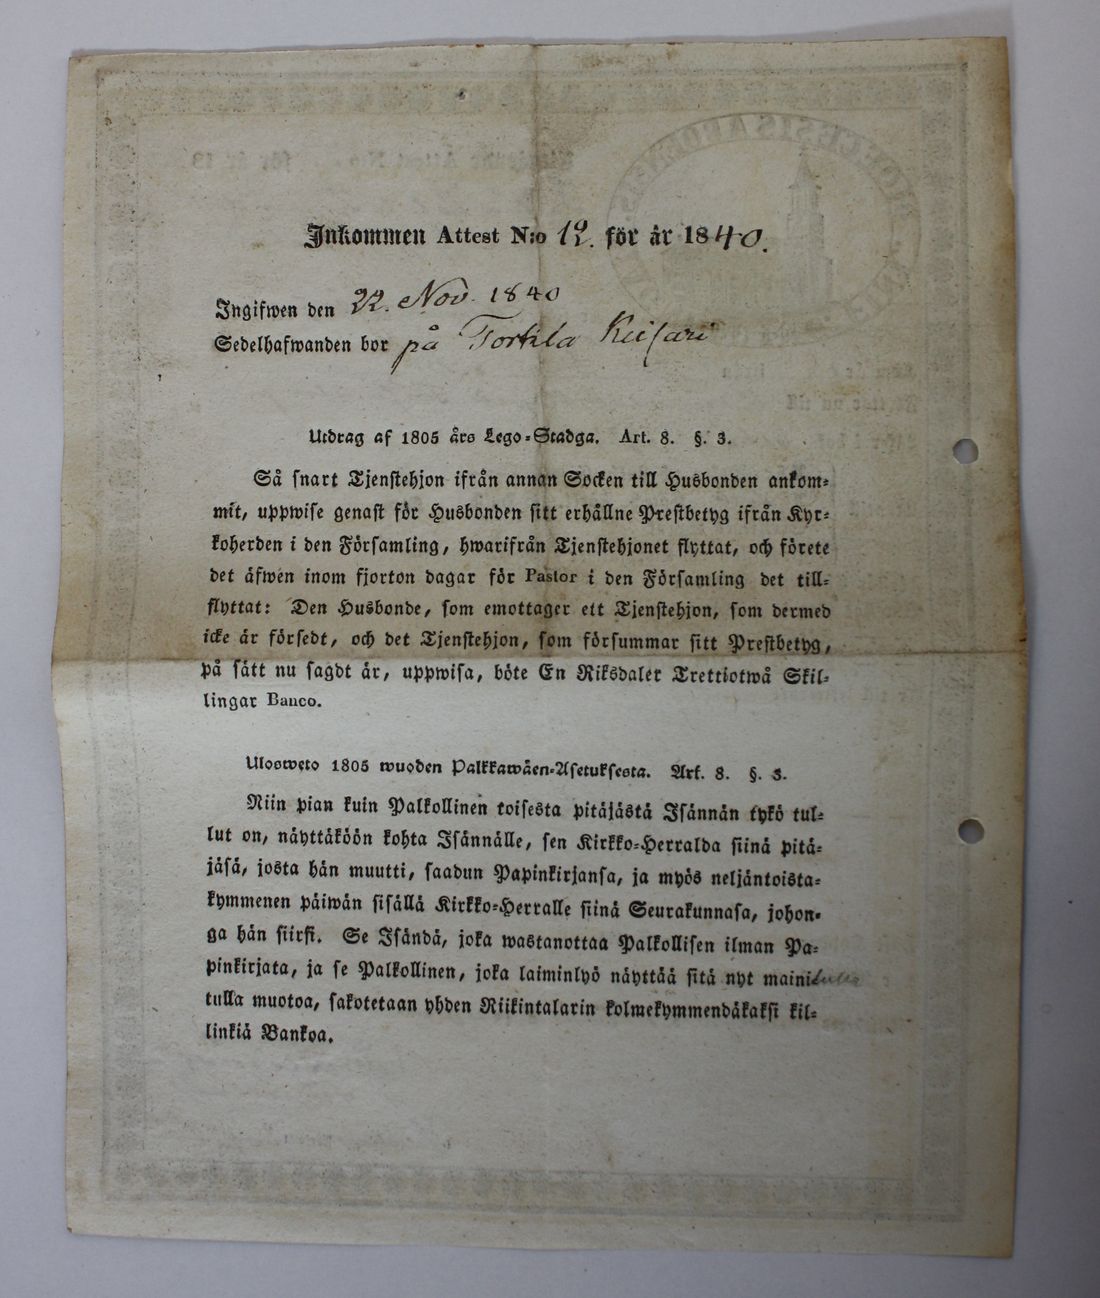 Inkommen Attest N:o 12. för år 1840.
Ingifwen den 22. Nov. 1840
Sedelhafwanden bor på Torkila
Utdrag af 1805 års Lego-Stadga. Art. 8. §. 3.
Så snart Tjenstehjon ifrån annan Socken till Husbonden ankom-
mit, uppwise genast för Husbonden sitt erhållne Prestbetyg ifrån Kyr-
koherden i den Församling, hwarifrån Tjenstehjonet flyttat, och förete
det äfwen inom fjorton dagar för Pastor i den Församling det till-
flyttat: Den Husbonde, som emottager ett Tjenstehjon, som dermed
icke är försedt, och det Tjenstehjon, som försummar sitt Prestbetyg,
på sätt nu sagdt är, uppwisa, böte En Riksdaler Trettiotwå Skil-
lingar Banco.
Ulosweto 1805 wuoden Palkkawäen-Asetuksesta. Art. 8. §. 3.
Niin pian kuin Palkollinen toisesta pitäjästä Isännän tykö tul-
lut on, näyttäköön kohta Isännälle, sen Kirkko-Herralda siinä pitä-
jäsä, josta hän muutti, saadun Papinkirjansa, ja myös neljäntoista-
kymmenen päiwän sisällä Kirkko-Herralle siinä Seurakunnasa, johon-
ga hän siirsi. Se Isändä, joka wastanottaa Palkollisen ilman Pa-
pinkirjata, ja se Palkollinen, joka laiminlyö näyttää sitä nyt maini
tulla muotoa, sakotetaan yhden Riikintalarin kolmekymmendäkaksi kil-
linkiä Bankoa.